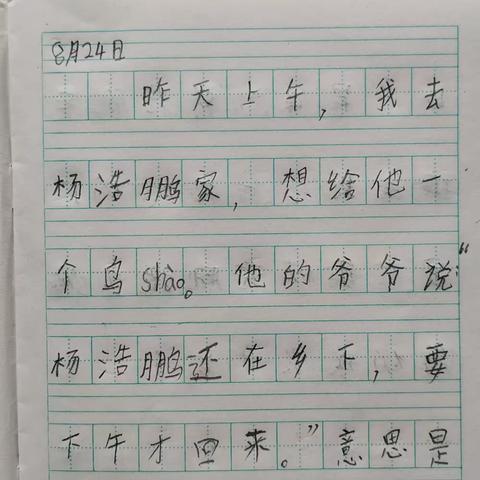 8月24日
昨天上午，我去
杨浩鹏家，想给他一
个鸟shào。他的爷爷说：“
杨浩鹏还在乡下，要
下午才回来。”意思是